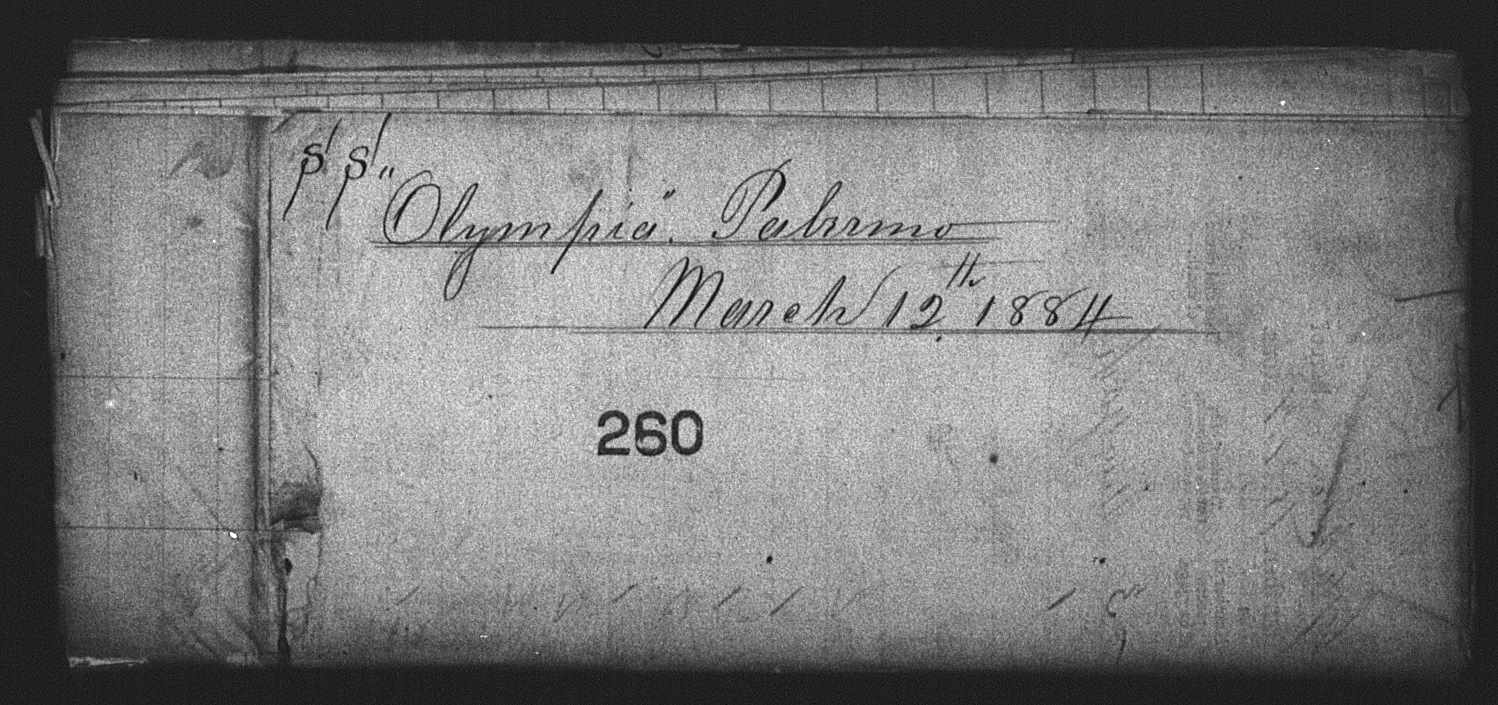 S/S "Olympia". Palermo
March 12th 1884
260